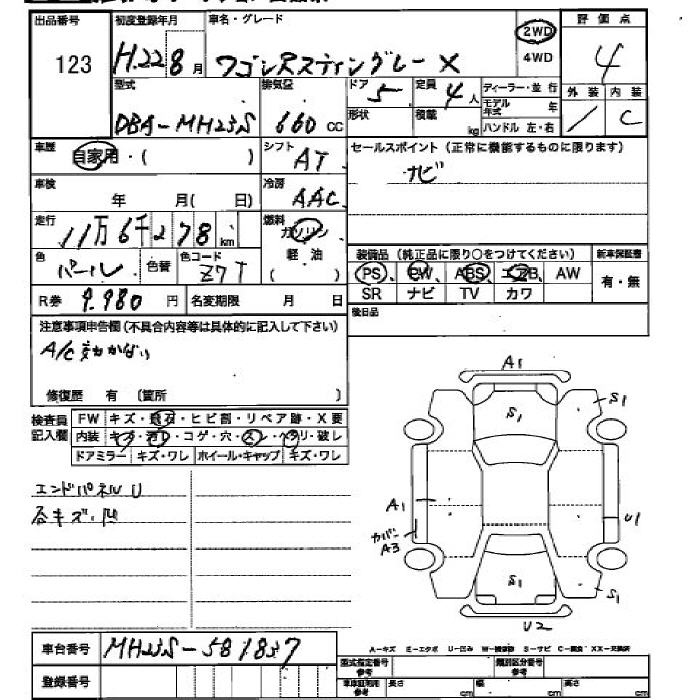 出品番号 初度登録年月 車名・グレード 評価点
123 H.22 8月 ワゴンRスティングレー X 2WD 4WD 4
型式 排気量 ドア 5 定員 4人 ディーラー・並行 外装 内装
DBA-MH23S 660 cc 形状 積載 kg モデル年式 年 ハンドル 左・右 / C
車歴 自家用・( ) シフト AT セールスポイント (正常に機能するものに限ります)
ナビ
車検 年 月(日) 冷房 AAC
走行 11万6千278km 燃料 ガソリン 軽油
色 パール 色替 色コード Z7T
装備品 (純正品に限り○をつけてください) 新車保証書
PS、PW、ABS、エアB、AW 有・無
SR ナビ TV カワ
R券 9.980円 名変期限 月 日 後日品
注意事項申告欄(不具合内容等は具体的に記入して下さい)
A/C効かない
修復歴 有 (箇所 )
検査員記入欄 FW キズ・飛石・ヒビ割・リペア跡・X要
内装 キズ・汚レ・コゲ・穴・スレ・ヘタリ・破レ
ドアミラー キズ・ワレ ホイール・キャップ キズ・ワレ
エンドパネル U
各キズ・凹
A1
S1
S1
A1
カバー A3
U1
S1
S1
U2
A-キズ E-エクボ U-凹み W-補修跡 S-サビ C-腐食 XX-交換済
車台番号 MH23S-581837
型式指定番号 参考 類別区分番号 参考
登録番号 車庫証明用 参考 長さ cm 幅 cm 高さ cm